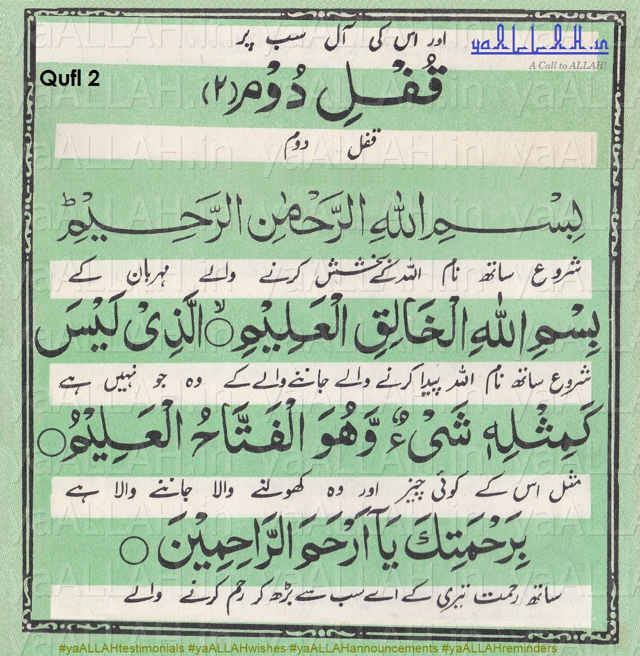 اور اس کی آل سب پر
yaALLAH.in
A Call to ALLAH!
Qufl 2
قُفْلِ دُوْم (۲)
قفل دوم
بِسْمِ اللهِ الرَّحْمٰنِ الرَّحِيْمِ ط
شروع ساتھ نام اللہ کے بخشش کرنے والے مہربان کے
بِسْمِ اللهِ الْخَالِقِ الْعَلِيْمِ ○ ۙ الَّذِىْ لَيْسَ
شروع ساتھ نام اللہ پیدا کرنے والے جاننے والے کے وہ جو نہیں ہے
كَمِثْلِهٖ شَىْءٌ وَّهُوَ الْفَتَّاحُ الْعَلِيْمُ ○
مثل اس کے کوئی چیز اور وہ کھولنے والا جاننے والا ہے
بِرَحْمَتِكَ يَآ اَرْحَمَ الرَّاحِمِيْنَ ○
ساتھ رحمت تیری کے اے سب سے بڑھ کر رحم کرنے والے
#yaALLAHtestimonials #yaALLAHwishes #yaALLAHannouncements #yaALLAHreminders